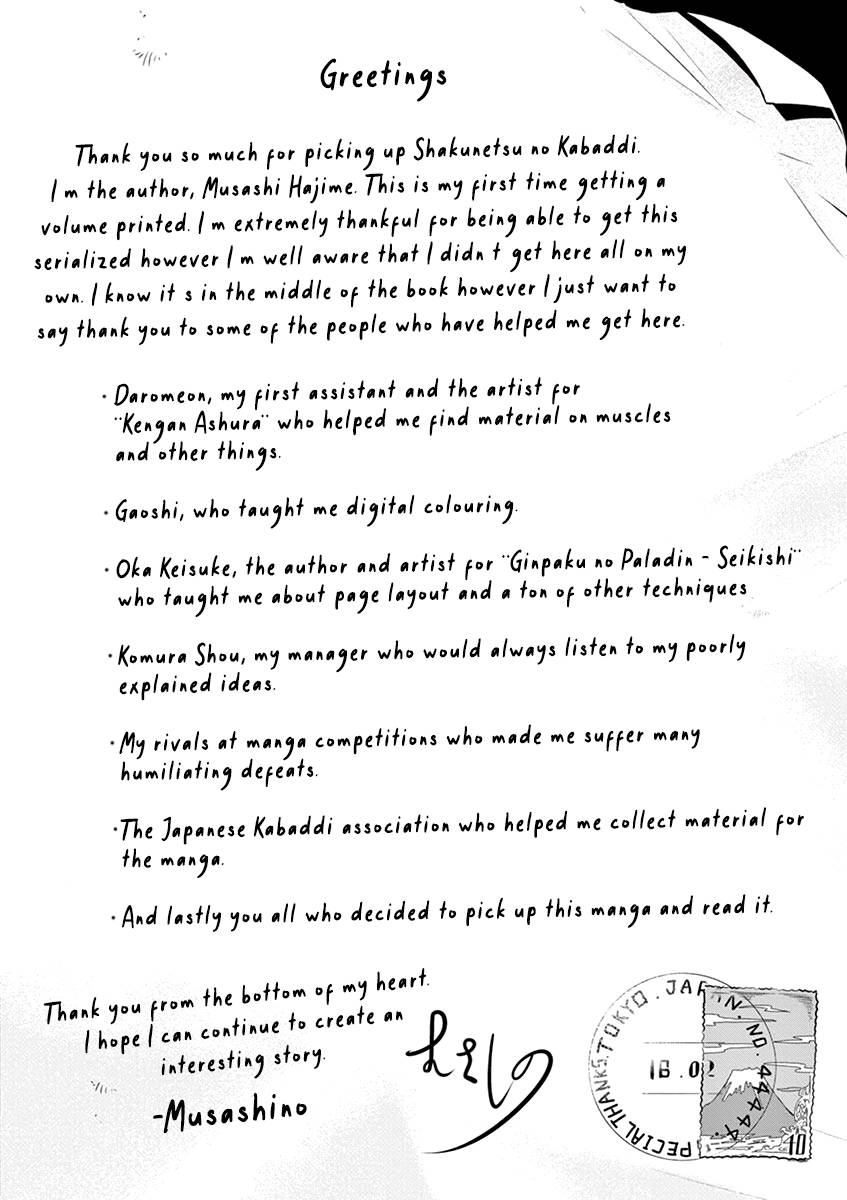 Greetings
Thank you so much for picking up Shakunetsu no Kabaddi.
I m the author, Musashi Hajime. This is my first time getting a
volume printed. I m extremely thankful for being able to get this
serialized however I m well aware that I didn t get here all on my
own. I know it s in the middle of the book however I just want to
say thank you to some of the people who have helped me get here.
· Daromeon, my first assistant and the artist for
¨Kengan Ashura¨ who helped me find material on muscles
and other things.
· Gaoshi, who taught me digital colouring.
· Oka Keisuke, the author and artist for ¨Ginpaku no Paladin - Seikishi¨
who taught me about page layout and a ton of other techniques
· Komura Shou, my manager who would always listen to my poorly
explained ideas.
· My rivals at manga competitions who made me suffer many
humiliating defeats.
· The Japanese Kabaddi association who helped me collect material for
the manga.
· And lastly you all who decided to pick up this manga and read it.
Thank you from the bottom of my heart.
I hope I can continue to create an
interesting story.
-Musashino
SPECIAL THANKS. TOKYO. JAPAN. NO. 44444.
16.02
40